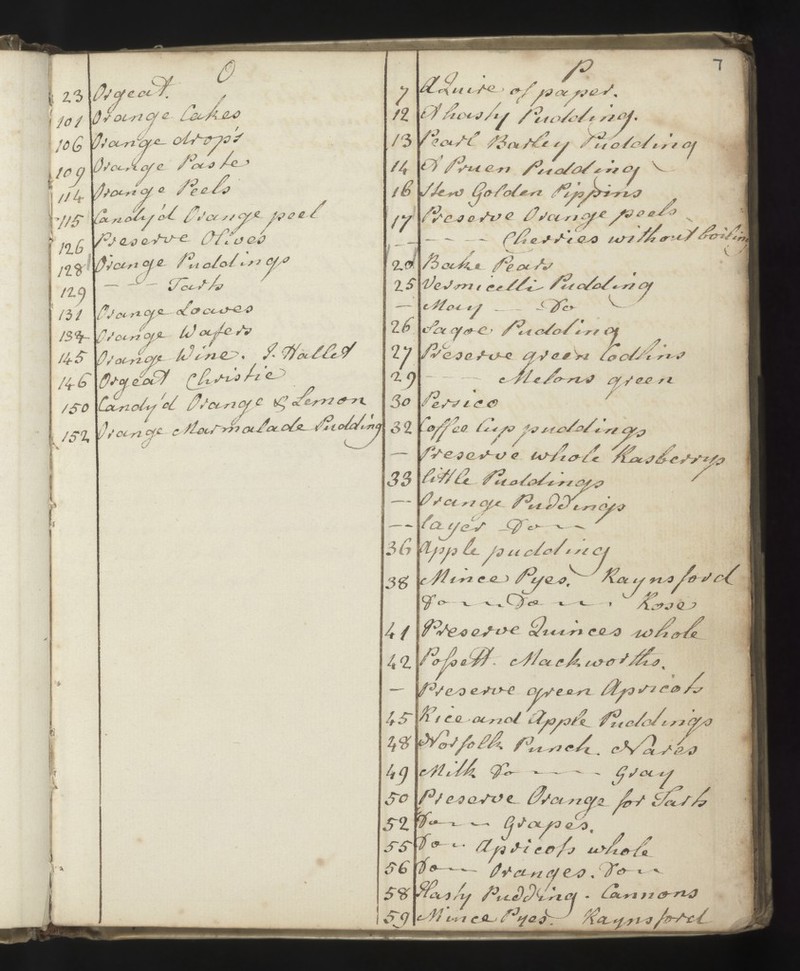 O
23 Orgeat.
101 Orange Cakes
106 Orange drop's
109 Orange Paste
114 Orange Peels
115 Candy'd Orange peel
126 Preserve Olives
128 Orange Puddings
129 — — — Tarts
131 Orange Loaves
134 Orange Wafers
145 Orange Wine. J. Hallet
146 Orgeat Christie
150 Candy'd Orange & Lemon
152 Orange Marmalade Pudding
P
7
7 A Quire of paper.
12 A hasty Pudding.
13 Pearl Barley Pudding
14 A Pruen Pudding
16 Stew Golden Pippins
17 Preserve Orange peels
— — — — Cherries without boiling
20 Bake Pears
25 Vermicelli Pudding
— May — Do
26 Sagoe Pudding
27 Preserve green Codlins
29 — — Melons green
30 Persico
32 Coffee Cup puddings
— Preserve whole Rasberrys
33 little Puddings
— Orange Puddings
— layer Do —
36 Apple pudding
38 Mince Pyes. Raynsford
Do — — Do — — Rose
41 Preserve Quinces whole
42 Possett. Mackworths.
— Preserve green Apricots
45 Rice and Apple Puddings
48 Norfolk Punch. Nares
49 Milk Do — — — Gray
50 Preserve Orange for Tarts
52 Do — — Grapes.
55 Do — Apricots whole
56 Do — Oranges. Do —
58 Hasty Pudding - Cannons
59 Mince Pyes. Raynsford